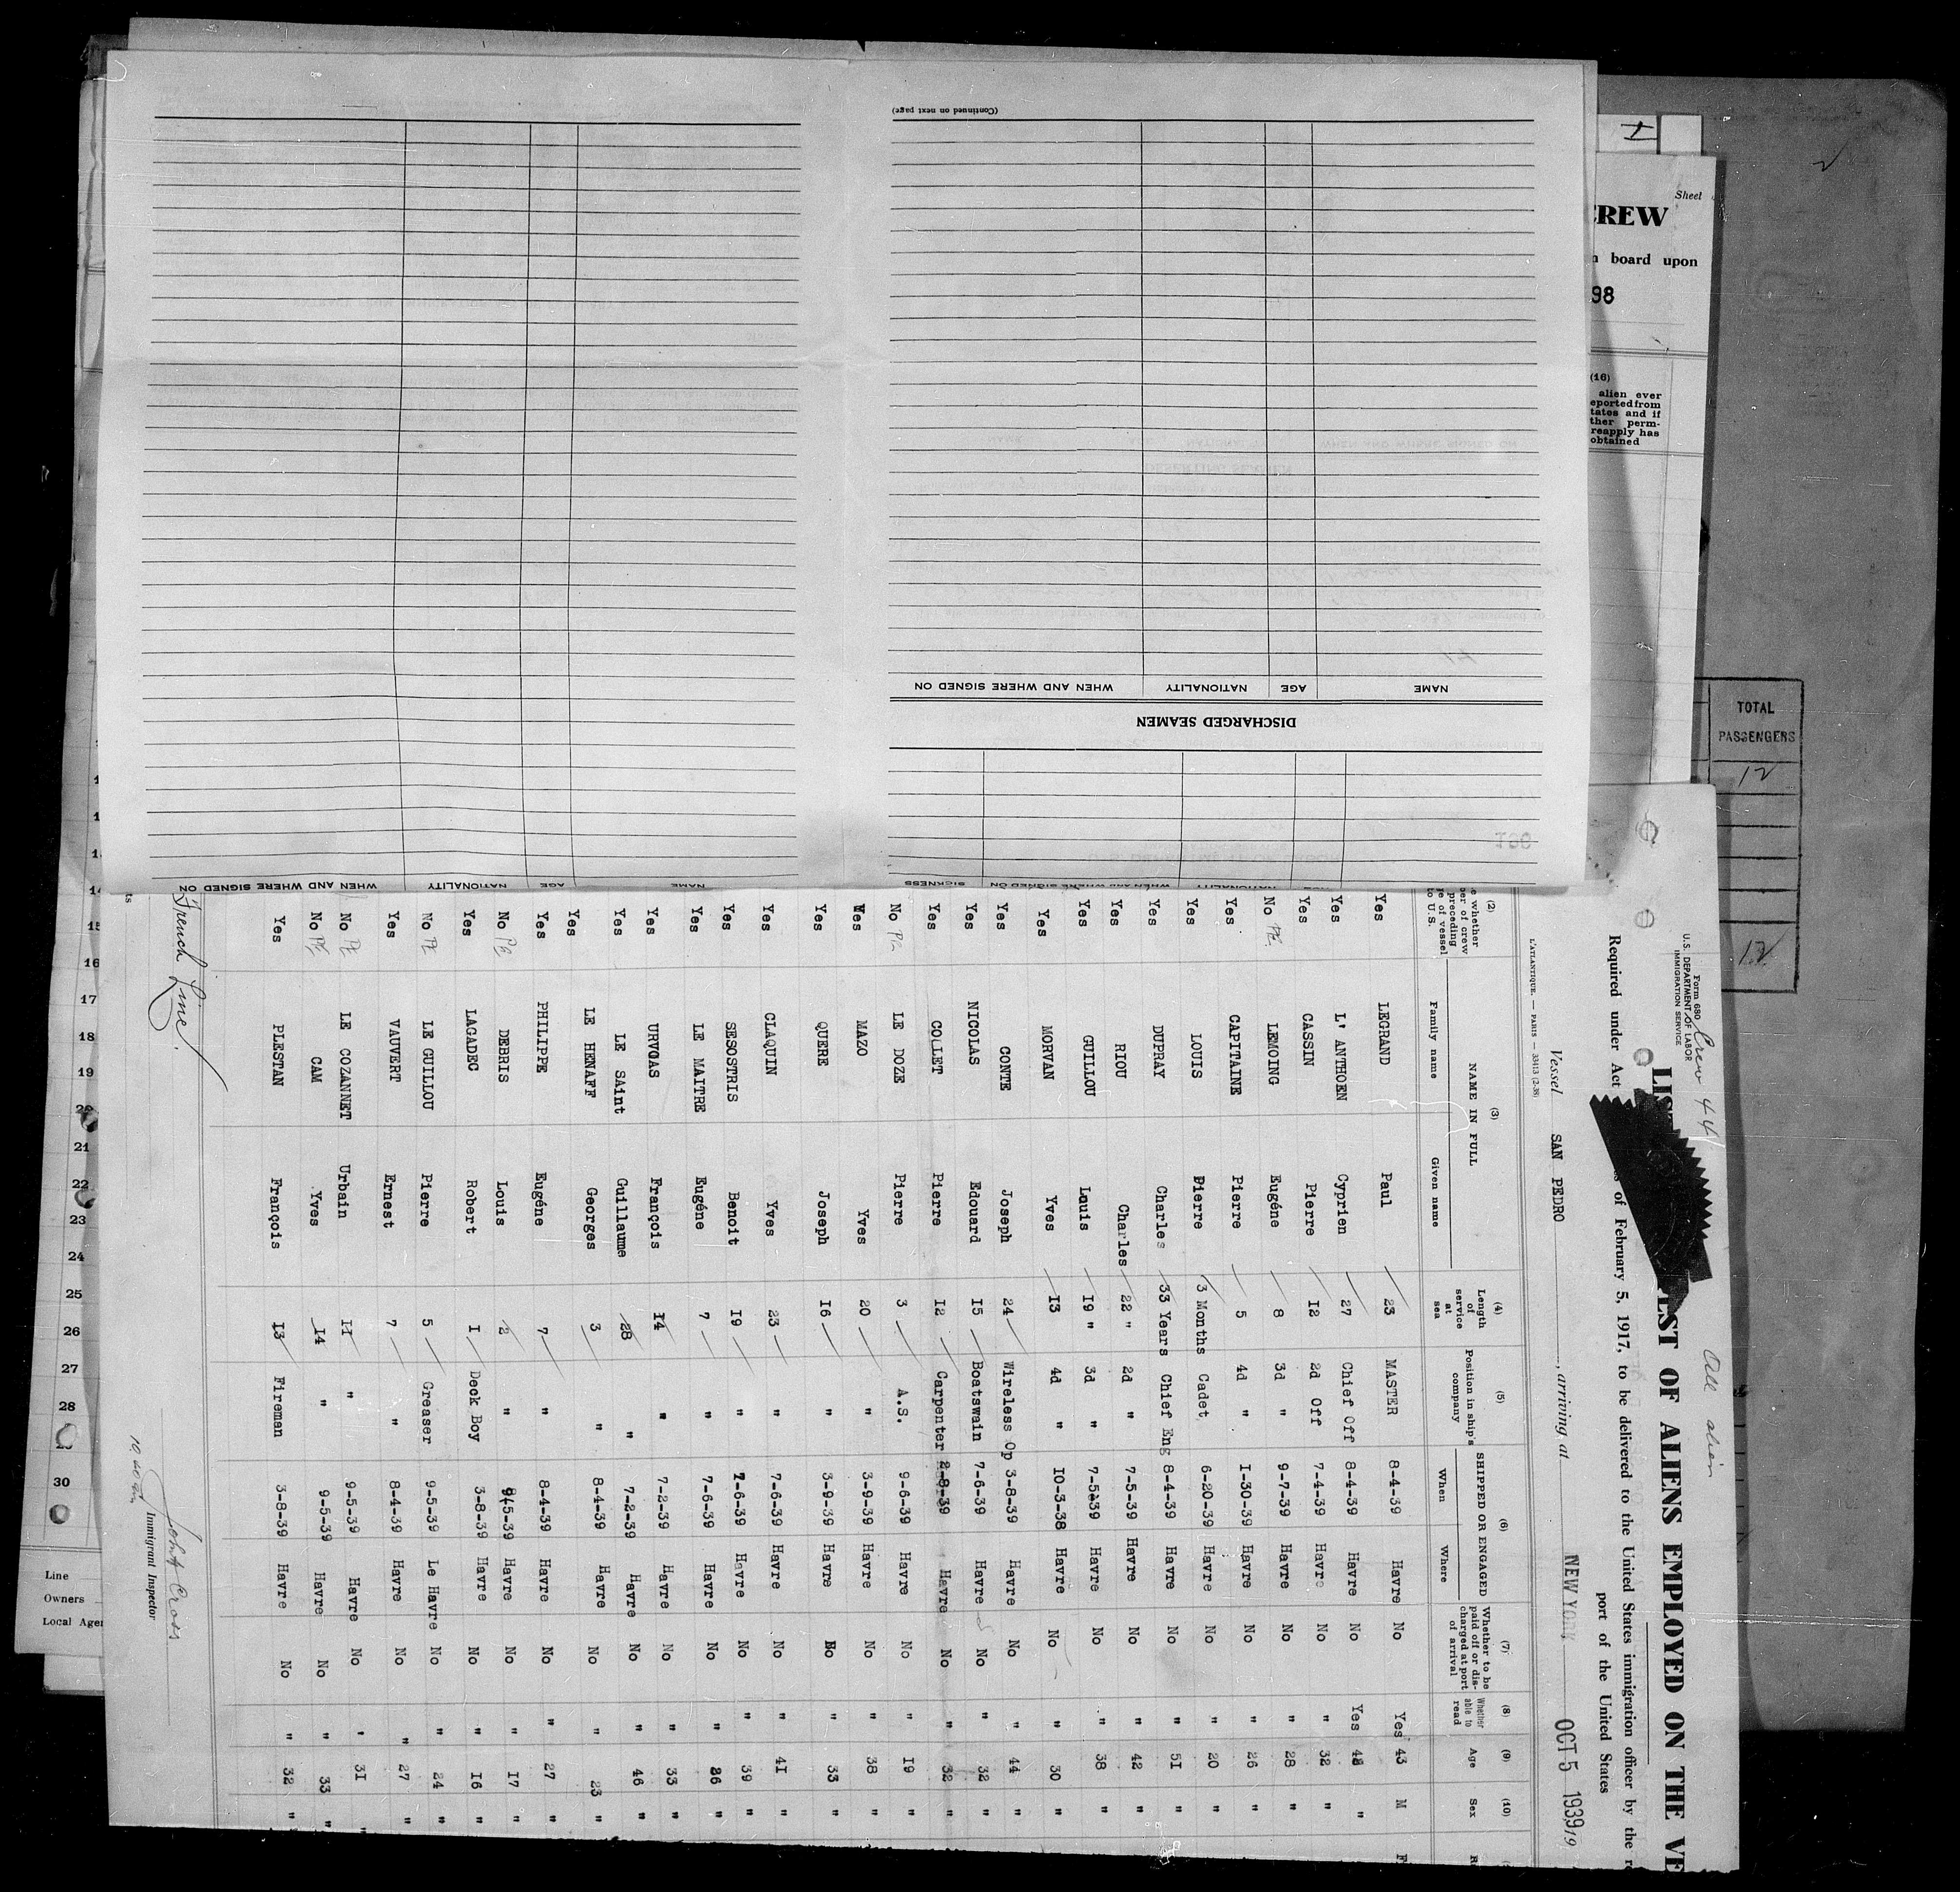 (Continued on next page)
NAME AGE NATIONALITY WHEN AND WHERE SIGNED ON
DISCHARGED SEAMEN
NAME AGE NATIONALITY WHEN AND WHERE SIGNED ON
Sheet
CREW
board upon
98
(16)
alien ever
eported from
tates and if
ther perm-
reapply has
obtained
TOTAL
PASSENGERS
12
12
14
15
16
17
18
19
21
22
23
24
25
26
27
28
30
Line
Owners
Local Agen
Form 680
U.S. DEPARTMENT OF LABOR
IMMIGRATION SERVICE
Crew 44
All alien
EST OF ALIENS EMPLOYED ON THE VE
Required under Act of February 5, 1917, to be delivered to the United States immigration officer by the
port of the United States
Vessel SAN PEDRO, arriving at NEW YORK OCT 5 1939 19
L'ATLANTIQUE. — PARIS — 33413 (2-38)
(2) (3) (4) (5) (6) (7) (8) (9) (10)
NAME IN FULL
Family name Given name
Length of service at sea
Position in ship's company
SHIPPED OR ENGAGED
When Where
Whether to be paid off or discharged at port of arrival
Whether able to read
Age
Sex
Yes LEGRAND Paul 23 MASTER 8-4-39 Havre No Yes 43 M
Yes L' ANTHOEN Cyprien 27 Chief Off 8-4-39 Havre No Yes
Yes CASSIN Pierre 12 2d Off 7-4-39 Havre No " 32 "
No PL LEMOING Eugéne 8 3d " 9-7-39 Havre No " 28 "
Yes CAPITAINE Pierre 5 4d " I-30-39 Havre No " 26 "
Yes LOUIS Pierre 3 Months Cadet 6-20-39 Havre No " 20 "
Yes DUPRAY Charles 33 Years Chief Eng 8-4-39 Havre No " 5I "
Yes RIOU Charles 22 " 2d " 7-5-39 Havre No " 42 "
Yes GUILLOU Louis I9 " 3d " 7-5-39 Havre No " 38 "
Yes MORVAN Yves I3 4d " I0-3-38 Havre No " 30 "
Yes CONTE Joseph 24 Wireless Op 3-8-39 Havre No " 44 "
Yes NICOLAS Edouard I5 Boatswain 7-6-39 Havre No " 32 "
Yes COLLET Pierre I2 Carpenter 2-8-39 Havre No " 32 "
No PL LE DOZE Pierre 3 A.S. 9-6-39 Havre No " I9 "
Yes MAZO Yves 20 " 3-9-39 Havre No " 38 "
Yes QUERE Joseph I6 " 3-9-39 Havre No " 33 "
Yes CLAQUIN Yves 23 " 7-6-39 Havre No " 4I "
Yes SESOSTRIS Benoit I9 " 7-6-39 Havre No " 39 "
Yes LE MAITRE Eugéne 7 " 7-6-39 Havre No " 26 "
Yes URVOAS François I4 " 7-2-39 Havre No " 33 "
Yes LE SAint Guillaume 28 " 7-2-39 Havre No " 46 "
Yes LE HENAFF Georges 3 " 8-4-39 Havre No " 23 "
Yes PHILIPPE Eugéne 7 " 8-4-39 Havre No " 27 "
No PL DEBRIS Louis 2 " 9-5-39 Havre No " I7 "
Yes LAGADEC Robert I Deck Boy 3-8-39 Havre No " I6 "
No PL LE GUILLOU Pierre 5 Greaser 9-5-39 Le Havre No " 24 "
Yes VAUVERT Ernest 7 " 8-4-39 Havre No " 27 "
No PL LE COZANNET Urbain II " 9-5-39 Havre No " 3I "
No PL CAM Yves I4 " 9-5-39 Havre No " 33 "
Yes PLESTAN François I3 Fireman 3-8-39 Havre No " 32 "
French Line.
John Cross
Immigrant Inspector